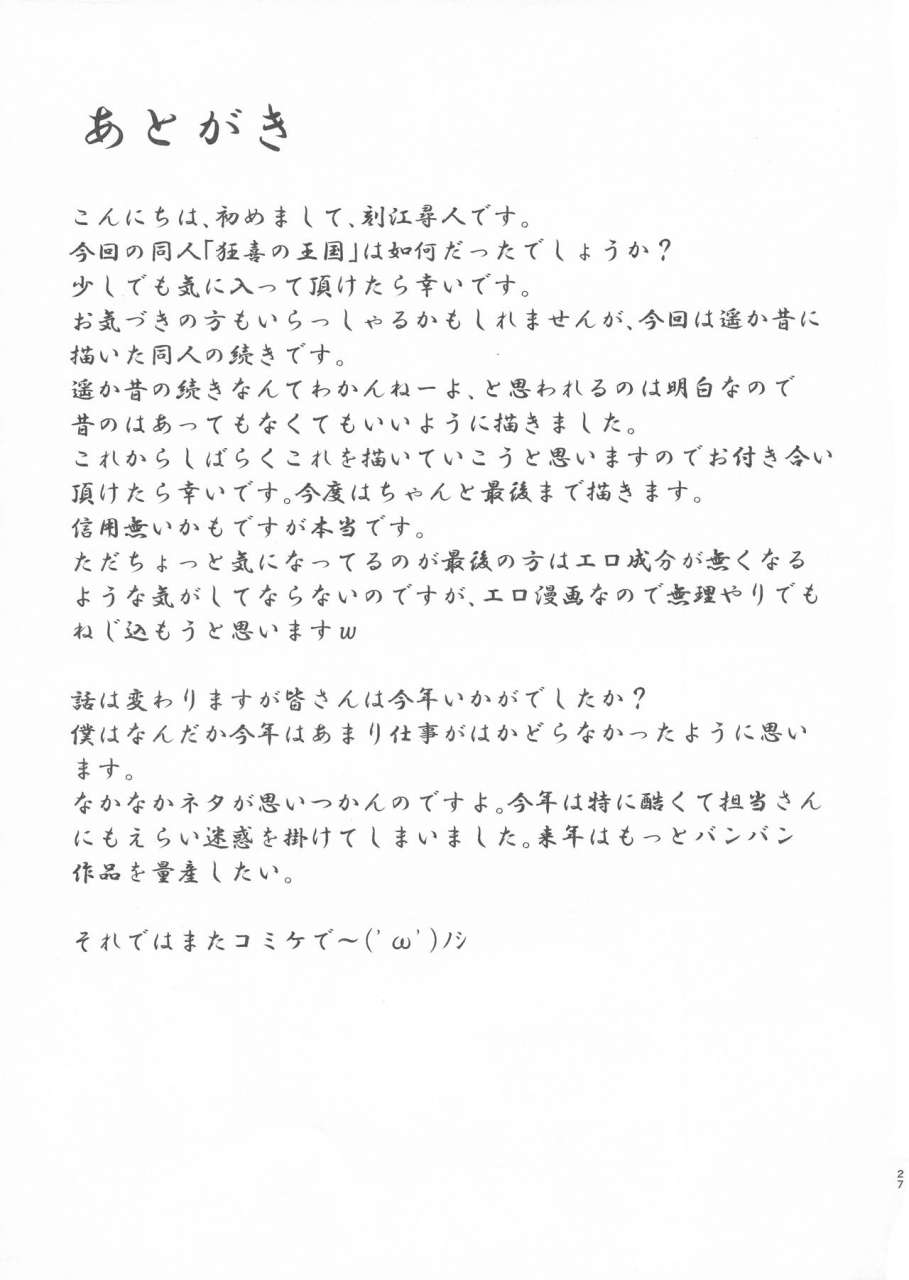 あとがき
こんにちは、初めまして、刻江尋人です。
今回の同人「狂喜の王国」は如何だったでしょうか？
少しでも気に入って頂けたら幸いです。
お気づきの方もいらっしゃるかもしれませんが、今回は遥か昔に
描いた同人の続きです。
遥か昔の続きなんてわかんねーよ、と思われるのは明白なので
昔のはあってもなくてもいいように描きました。
これからしばらくこれを描いていこうと思いますのでお付き合い
頂けたら幸いです。今度はちゃんと最後まで描きます。
信用無いかもですが本当です。
ただちょっと気になってるのが最後の方はエロ成分が無くなる
ような気がしてならないのですが、エロ漫画なので無理やりでも
ねじ込もうと思いますｗ
話は変わりますが皆さんは今年いかがでしたか？
僕はなんだか今年はあまり仕事がはかどらなかったように思い
ます。
なかなかネタが思いつかんのですよ。今年は特に酷くて担当さん
にもえらい迷惑を掛けてしまいました。来年はもっとバンバン
作品を量産したい。
それではまたコミケで～(' ω')ﾉｼ
27